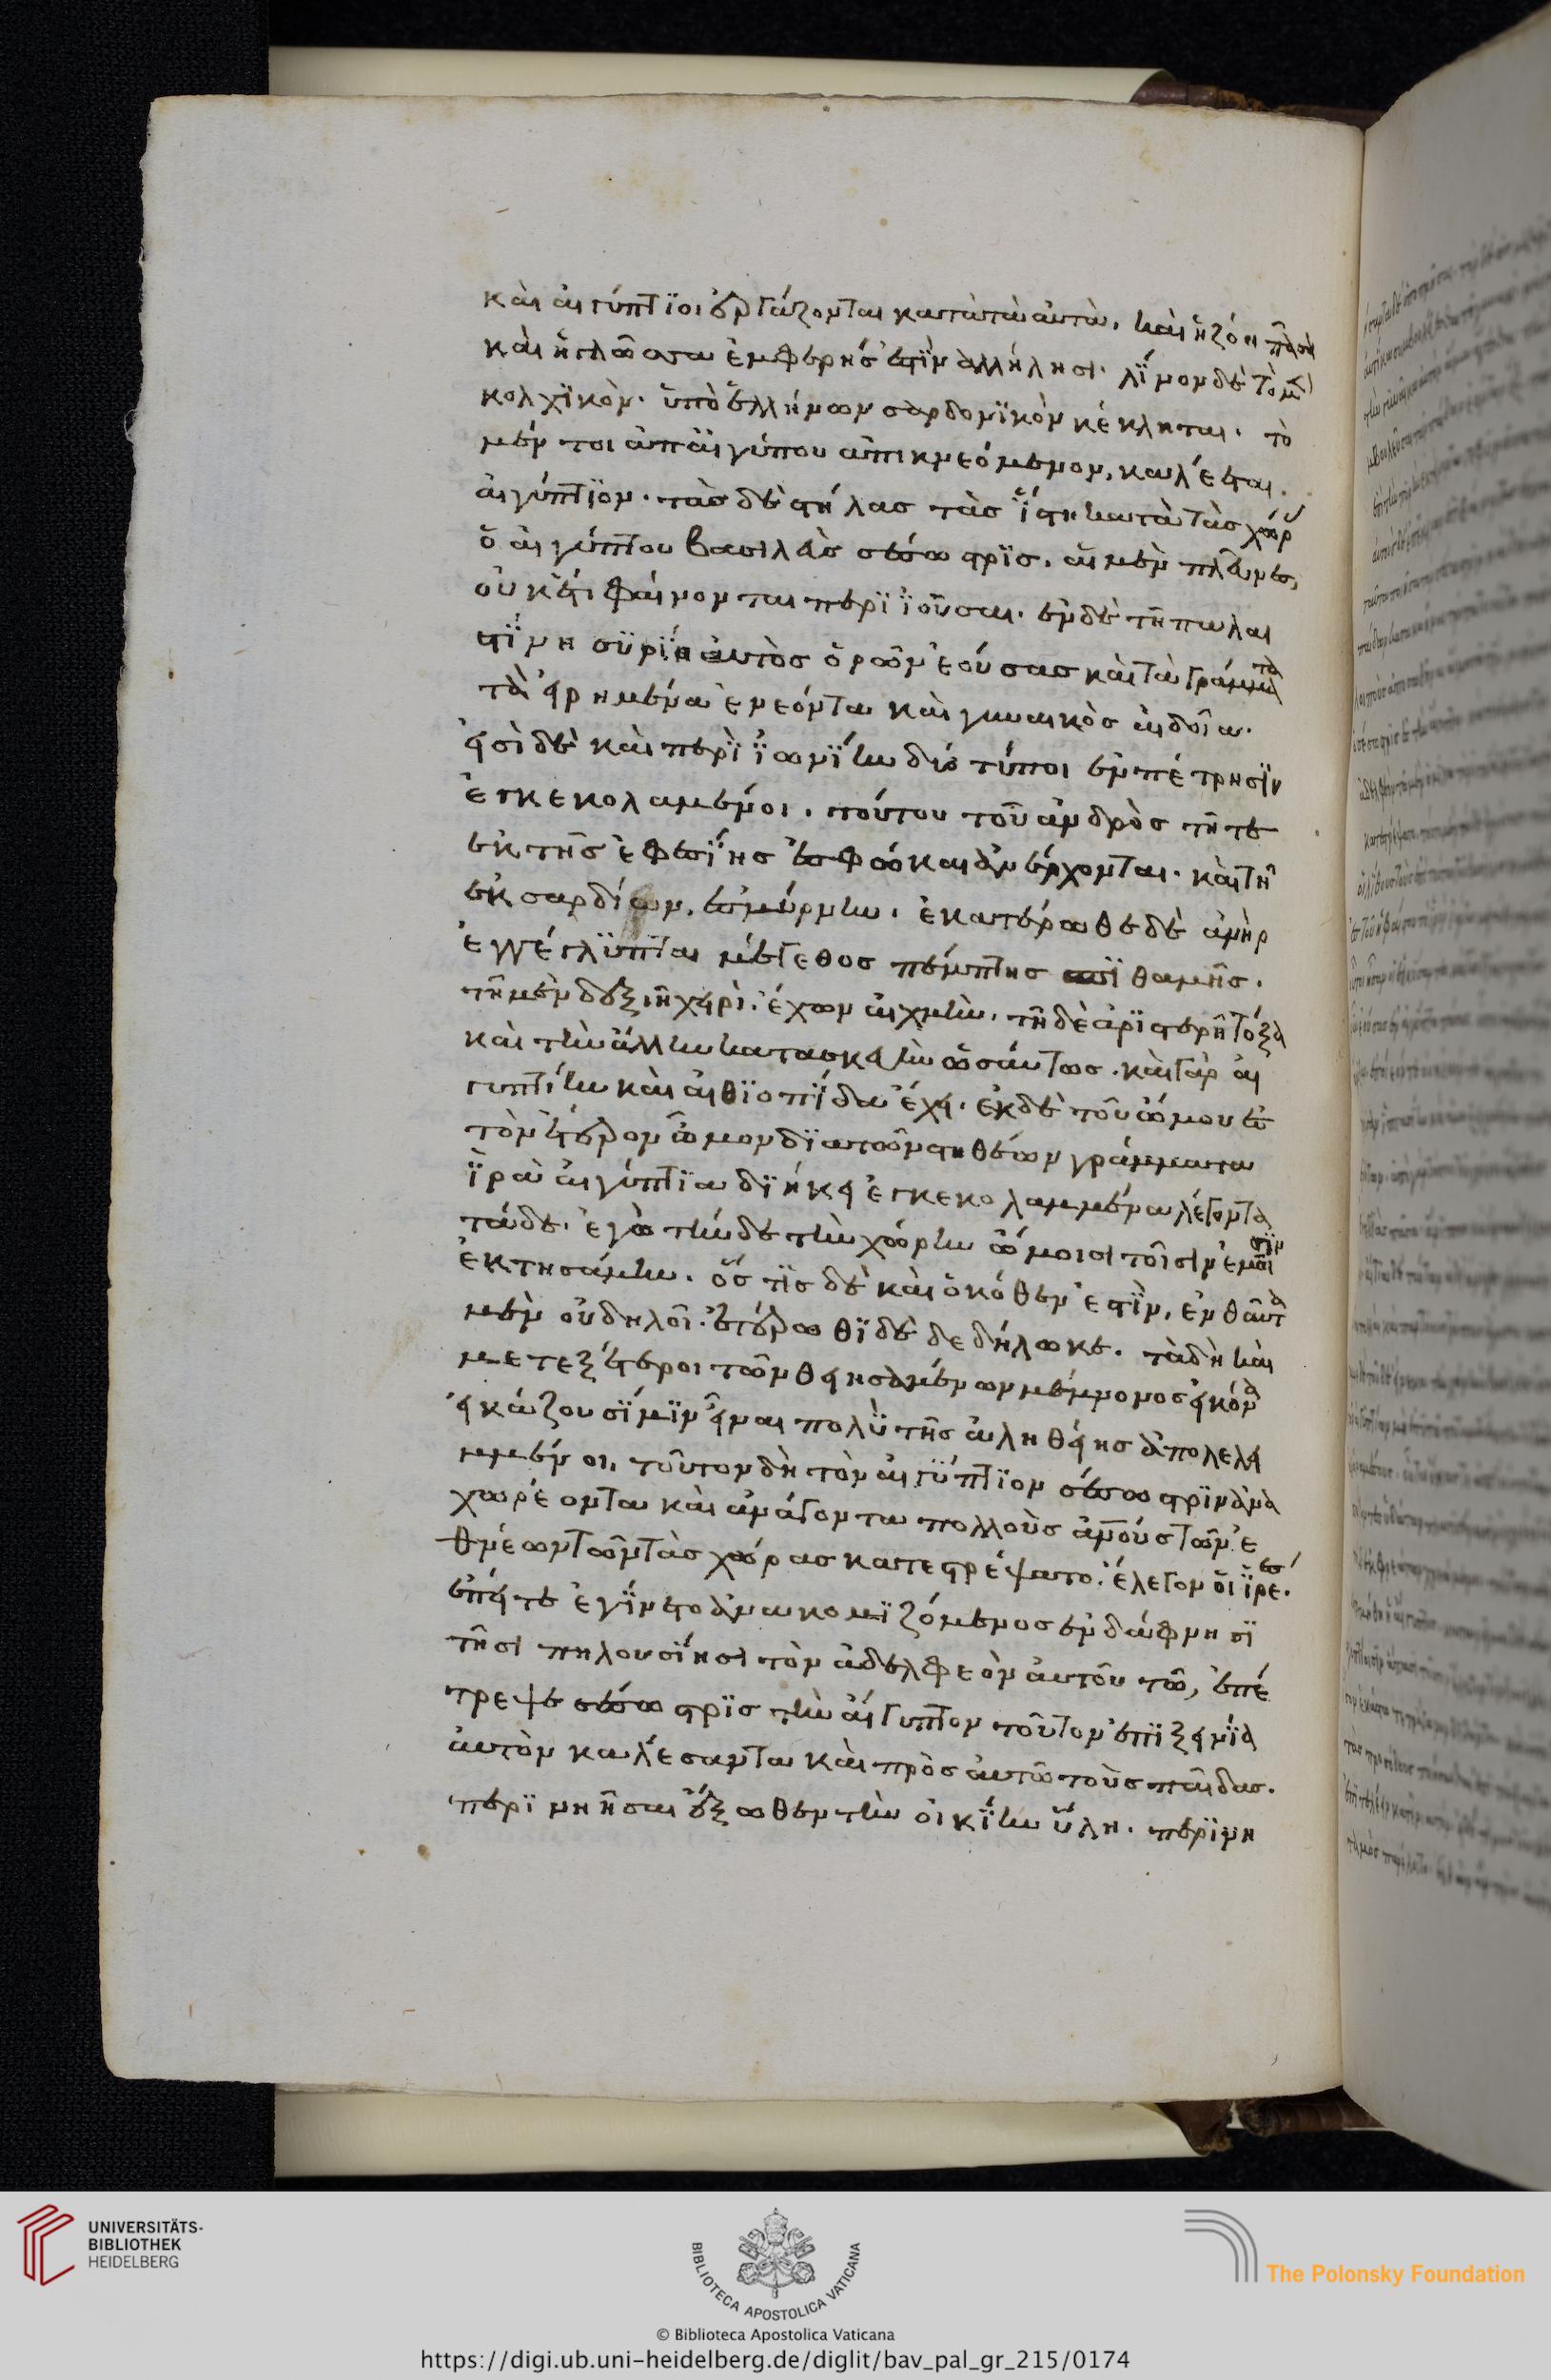 καὶ αἰγύπτϊοι ἐργάζονται κατὰ ταὐτὰ. καὶ ἡ ζόη πᾶσα
καὶ ἡ γλῶσσα ἐμφερής ἐστϊν ἀλλήλησι. λΐνον δὲ τὸ μὲν
κολχϊκὸν. ὑπὸ ἑλλήνων σαρδονϊκὸν κέκληται. τὸ
μέν τοι ἀπ' αἰγύπου ἀπικνεόμενον, καλέεται.
αἰγύπτϊον. τὰσ δὲ στήλασ τὰσ ἵστη κατὰ τὰσ χώρ
ὁ αἰγύπτου βασιλεὺσ σέσωστρϊσ. αἱ μὲν πλεῦνεσ,
οὐκέτι φαίνονται περϊϊοῦσαι. ἐν δὲ τῆ παλαι
στΐνη συρΐη αὐτὸσ ὁρῶν ἐούσασ καὶ τὰ γράμματα
τὰ εἰρημένα ἐνεόντα καὶ γυναικὸσ αἰδοῖα.
εἰσὶ δὲ καὶ περὶ ϊωνΐην δύο τύποι ἐν πέτρησϊν
ἐγκεκολαμένοι. τούτου τοῦ ἀνδρὸσ τῆ τε
ἐκ τῆσ ἐφεσΐησ ἐσ φώκαιαν ἔρχονται. καὶ τῆ
ἐκ σαρδίων, ἐσ μύρνην. ἑκατέρωθε δὲ ἀνὴρ
ἐγγέγλϋπται μέγεθοσ πέμπτησ σπϊθαμῆσ.
τῆ μὲν δεξιῆ χερὶ ἔχων αἰχμὴν. τῆ δὲ ἀρϊστερῆ τόξα
καὶ τὴν ἄλλην κατασκευὴν ὡσαύτωσ. καὶ γὰρ αἰ
γυπτίην καὶ αἰθϊοπΐδα ἔχει. ἐκ δὲ τοῦ ὤμου ἐσ
τὸν ἕτερον ὦμον δϊὰ τῶν στηθέων γράμματα
ϊ̔ρὰ αἰγύπτϊα δϊήκει ἐγκεκολαμμένα λέγοντα
τάδε. ἐγὼ τήνδε τὴν χώρην ὤμοισι τοῖσιν ἐμοῖσϊν
ἐκτησάμην. ὅσ τϊσ δὲ καὶ ὁκόθεν ἐστῒν, ἐνθαῦτα
μὲν οὐ δηλοῖ. ἑτέρωθϊ δὲ δεδήλωκε. τὰ δὴ καὶ
μετεξέτεροι τῶν θεησαμένων μέμνονοσ εἰκόνα
εἰκάζουσϊ μϊν εἶναι πολὺ τῆσ ἀληθείησ ἀπολελει
μμένοι, τοῦτον δὴ τὸν αἰγύπτϊον σέσωστρϊν ἀνα
χωρέοντα καὶ ἀνάγοντα πολλοὺσ ἀνούσ τῶν ἐ
θνέων τῶν τὰσ χώρασ κατεστρέψατο. ἔλεγον οἱ ϊ̔ρέεσ.
ἐπεί τε ἐγΐνετο ἀνακομϊζόμενοσ ἐν δάφνησϊ
τῆσι πηλουσίησι τὸν ἀδελφεὸν αὐτοῦ τῶ, ἐπέ
τρεψε σέσωστρϊσ τὴν αἴγυπτον τοῦτον ἐπϊ ξεινΐα
αὐτὸν καλέσαντα καὶ πρὸσ αὐτῶ τοὺσ παῖδασ.
περϊνῆσαι ἔξωθεν τὴν οἰκΐην ὕλη. περϊνη
UNIVERSITÄTS-
BIBLIOTHEK
HEIDELBERG
BIBLIOTECA APOSTOLICA VATICANA
The Polonsky Foundation
© Biblioteca Apostolica Vaticana
https://digi.ub.uni-heidelberg.de/diglit/bav_pal_gr_215/0174